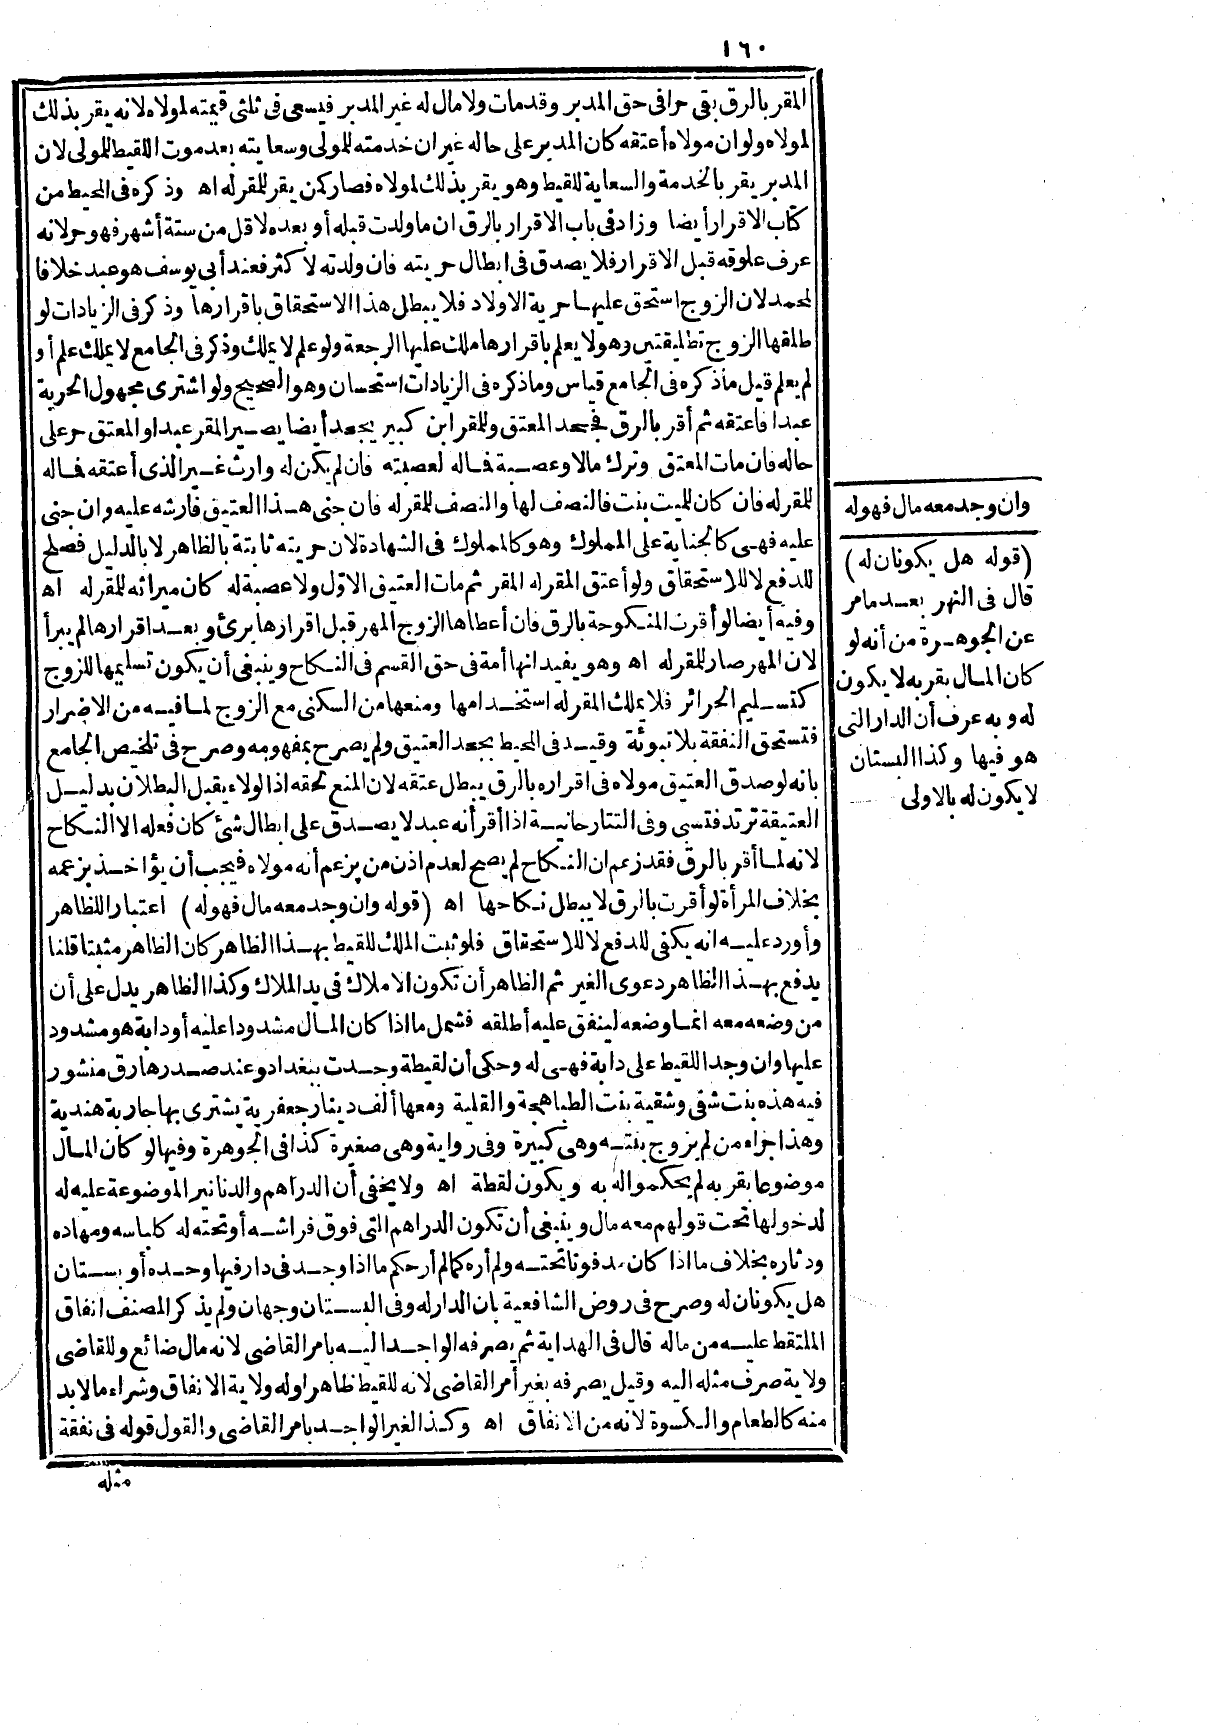 ١٦٠
المقر بالرق بقى حرا فى حق المدبر وقدمات ولا مال له غير المدبر فيسعى فى ثلثى قيمته لمولاه لانه يقر بذلك
لمولاه ولو ان مولاه أعتقه كان المدبر على حاله غير ان خدمته للمولى وسعايته بعد موت اللقيط للمولى لان
المدبر يقر بالخدمة والسعاية للقيط وهو يقر بذلك لمولاه فصار كمن يقر للمقر له اه وذكره فى المحيط من
كتاب الاقرار أيضا وزاد فى باب الاقرار بالرق ان ما ولدت قبله أو بعده لاقل من ستة أشهر فهو حر لانه
عرف علوقه قبل الاقرار فلا يصدق فى ابطال حريته فان ولدته لا كثر فعند أبى يوسف هو عبد خلافا
لمحمد لان الزوج استحق عليها حرية الاولاد فلا يبطل هذا الاستحقاق باقرارها وذكر فى الزيادات لو
طلقها الزوج تطليقتين وهو لا يعلم باقرارها ملك عليها الرجعة ولو علم لا يملك وذكر فى الجامع لا يملك علم أو
لم يعلم قيل ما ذكره فى الجامع قياس وما ذكره فى الزيادات استحسان وهو الصحيح ولو اشترى مجهول الحرية
عبدا فاعتقه ثم أقر بالرق فجحد المعتق وللمقر ابن كبير يجحد أيضا يصير المقر عبدا والمعتق حر على
حاله فان مات المعتق وترك مالا وعصبة فماله لعصبته فان لم يكن له وارث غير الذى أعتقه فماله
للمقر له فان كان للميت بنت فالنصف لها والنصف للمقر له فان جنى هذا العتيق فارشه عليه وان جنى
عليه فهى كالجناية على المملوك وهو كالمملوك فى الشهادة لان حريته ثابتة بالظاهر لا بالدليل فصلح
للدفع لا للاستحقاق ولو أعتق المقر له المقر ثم مات العتيق الاول ولا عصبة له كان ميراثه للمقر له اه
وفيه أيضا لو أقرت المنكوحة بالرق فان أعطاها الزوج المهر قبل اقرارها برئ وبعد اقرارها لم يبرأ
لان المهر صار للمقر له اه وهو يفيد انها أمة فى حق القسم فى النكاح وينبغى أن يكون تسليمها للزوج
كتسليم الحرائر فلا يملك المقر له استخدامها ومنعها من السكنى مع الزوج لما فيه من الاضرار
فتستحق النفقة بلا تبوئة وقيد فى المحيط بجحد العتيق ولم يصرح بمفهومه وصرح فى تلخيص الجامع
بانه لو صدق العتيق مولاه فى اقراره بالرق يبطل عتقه لان المنع لحقه اذ الولاء يقبل البطلان بدليل
العتيقة ترتد فتسبى وفى التتارخانية اذا أقر أنه عبد لا يصدق على ابطال شئ كان فعله الا النكاح
لانه لما أقر بالرق فقد زعم ان النكاح لم يصح لعدم اذن من يزعم أنه مولاه فيجب أن يؤاخذ بزعمه
بخلاف المرأة لو أقرت بالرق لا يبطل نكاحها اه (قوله وان وجد معه مال فهو له) اعتبارا للظاهر
وأورد عليه انه يكفى للدفع لا للاستحقاق فلو ثبت الملك للقيط بهذا الظاهر كان الظاهر مثبتا قلنا
يدفع بهذا الظاهر دعوى الغير ثم الظاهر أن تكون الاملاك فى يد الملاك وكذا الظاهر يدل على أن
من وضعه معه انما وضعه لينفق عليه أطلقه فشمل ما اذا كان المال مشدودا عليه أو دابة هو مشدود
عليها وان وجد اللقيط على دابة فهى له وحكى أن لقيطة وجدت ببغداد وعند صدرها رق منشور
فيه هذه بنت شقى وشقية بنت الطباهجة والقلية ومعها ألف دينار جعفرية يشترى بها جارية هندية
وهذا جزاء من لم يزوج بنته وهى كبيرة وفى رواية وهى صغيرة كذا فى الجوهرة وفيها لو كان المال
موضوعا بقربه لم يحكموا له به ويكون لقطة اه ولا يخفى أن الدراهم والدنانير الموضوعة عليه له
لدخولها تحت قولهم معه مال وينبغى أن تكون الدراهم التى فوق فراشه أو تحته له كلباسه ومهاده
ودثاره بخلاف ما اذا كان مدفونا تحته ولم أره كما لم أر حكم ما اذا وجد فى دار فيها وحده أو بستان
هل يكونان له وصرح فى روض الشافعية بان الدار له وفى البستان وجهان ولم يذكر المصنف انفاق
الملتقط عليه من ماله قال فى الهداية ثم يصرفه الواجد اليه بامر القاضى لانه مال ضائع وللقاضى
ولاية صرف مثله اليه وقيل يصرفه بغير أمر القاضى لانه للقيط ظاهرا وله ولاية الانفاق وشراء ما لا بد
منه كالطعام والكسوة لانه من الانفاق اه وكذا لغير الواجد بامر القاضى والقول قوله فى نفقة
مثله
وان وجد معه مال فهو له
(قوله هل يكونان له)
قال فى النهر بعد ما مر
عن الجوهرة من أنه لو
كان المال بقربه لا يكون
له وبه عرف أن الدار التى
هو فيها وكذا البستان
لا يكون له بالاولى